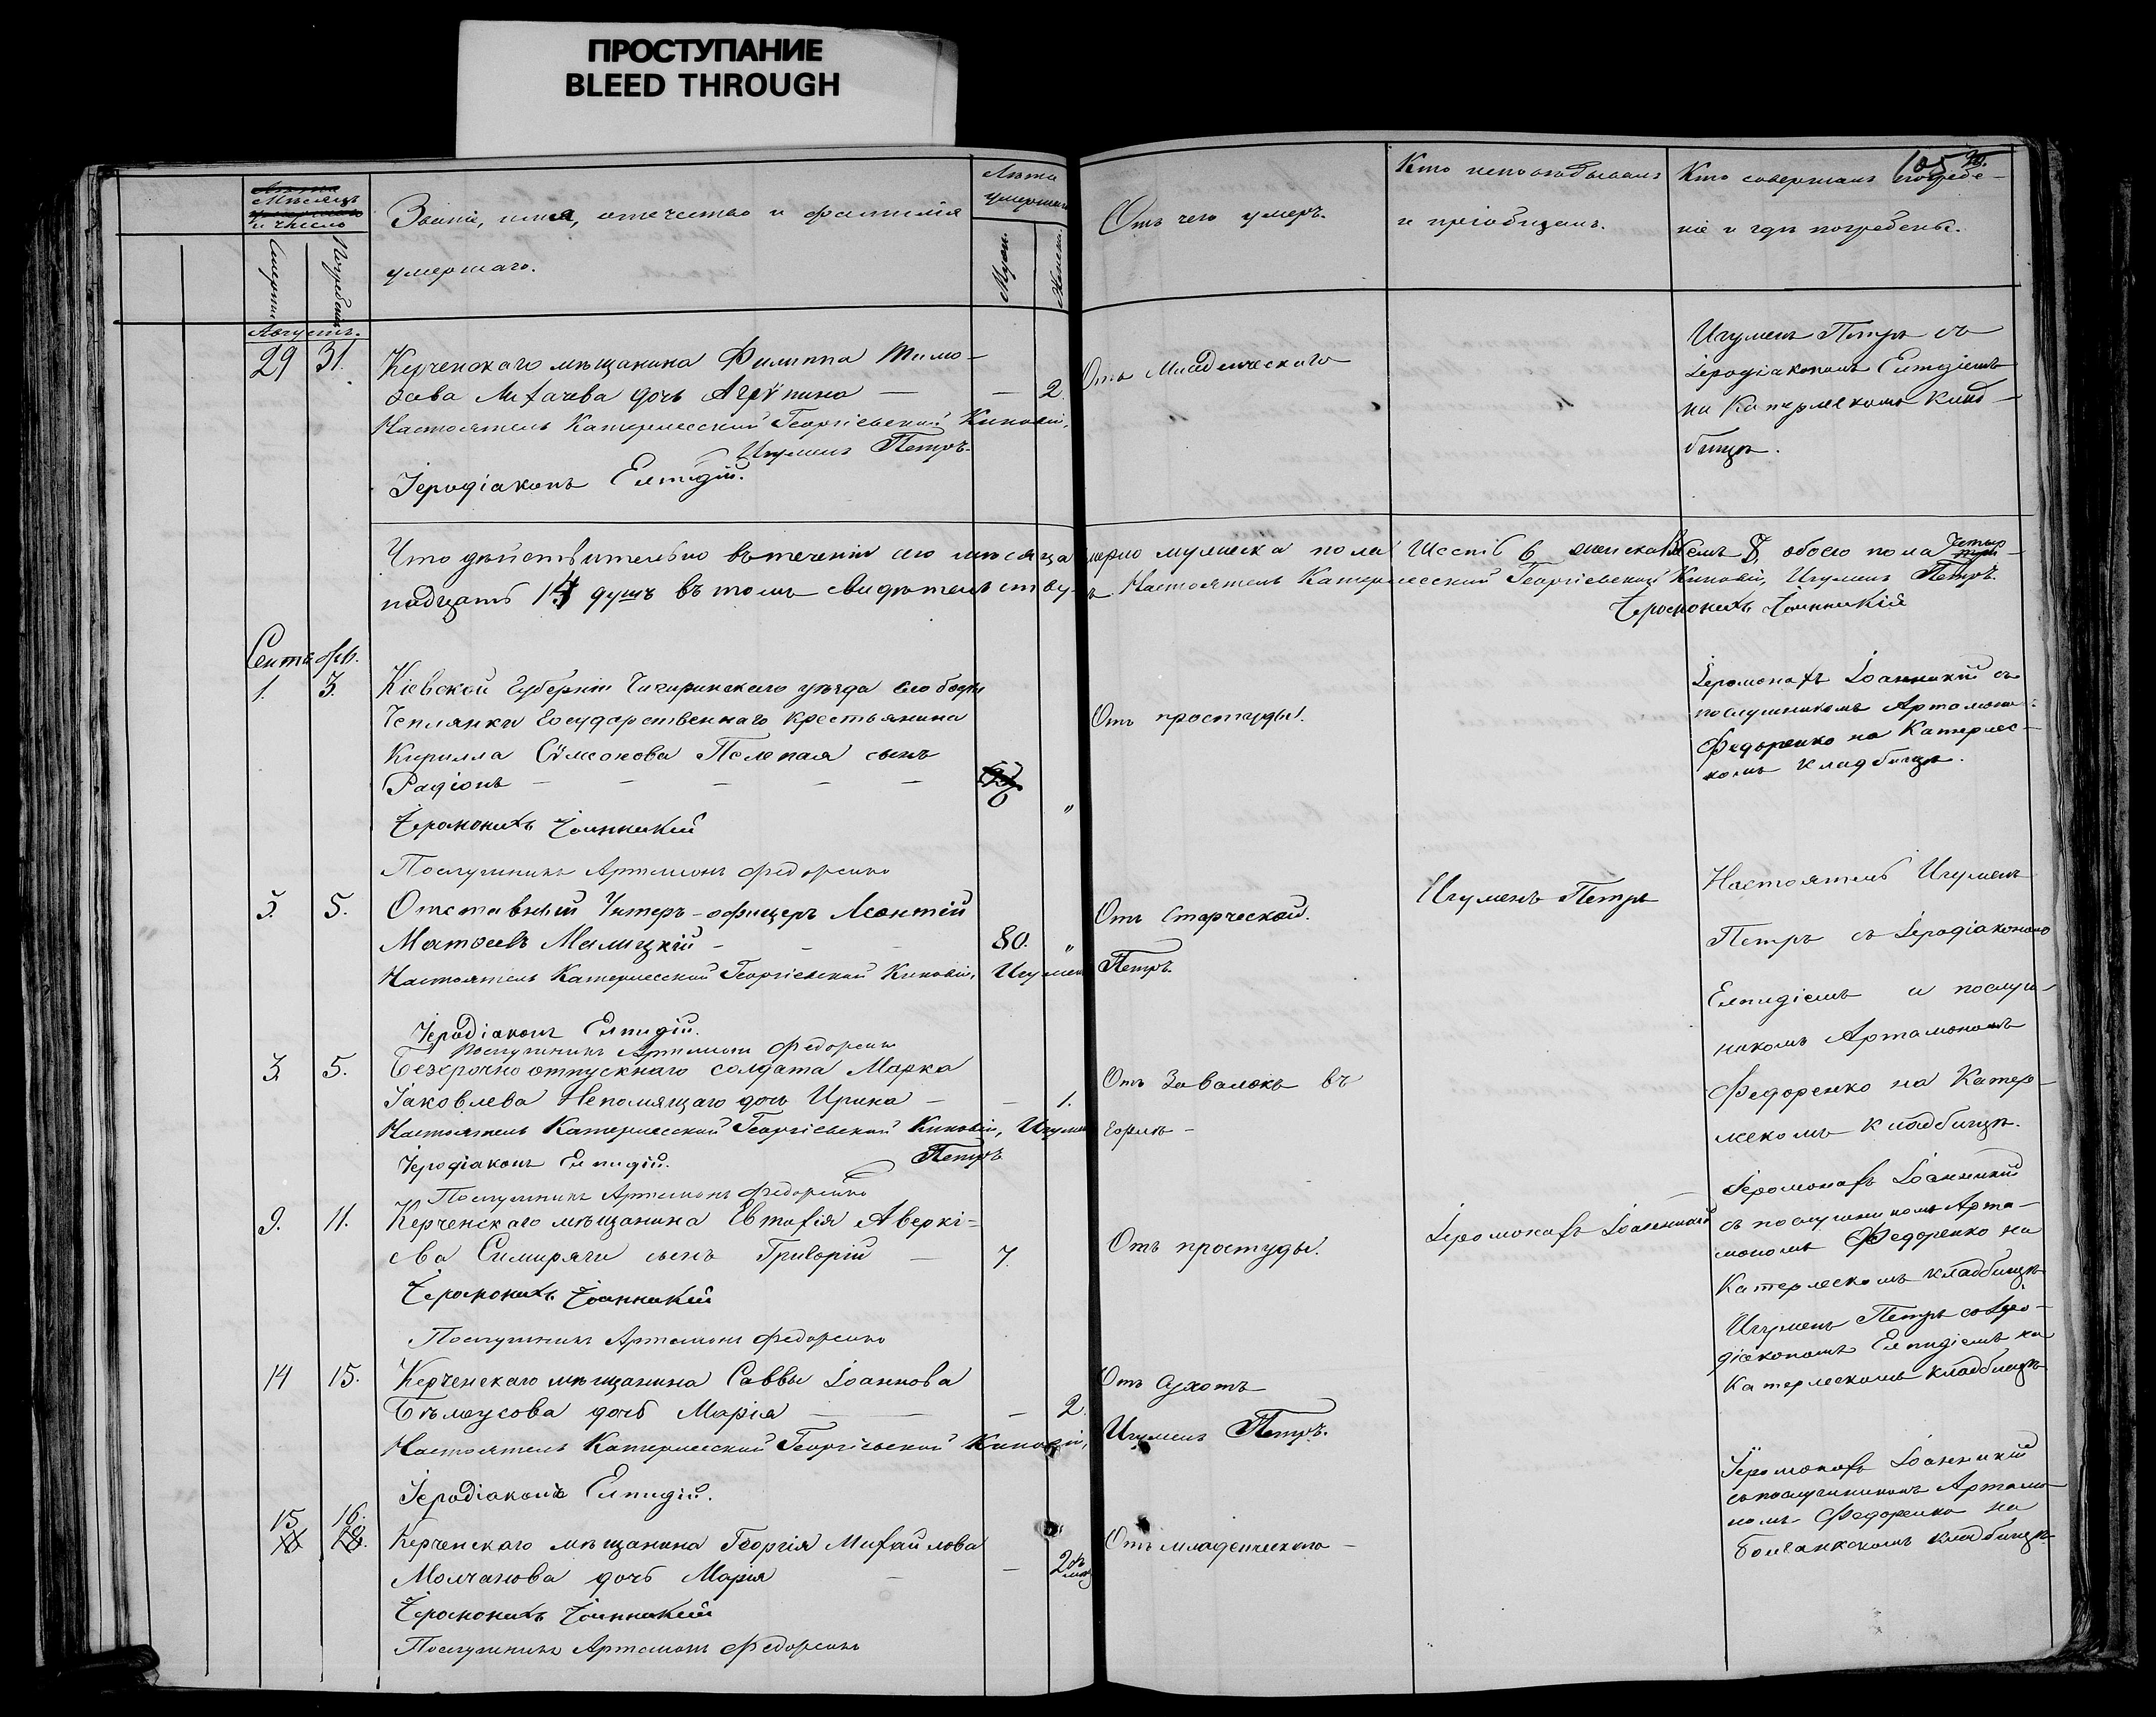 ПРОСТУПАНИЕ
BLEED THROUGH
Мѣсяцъ
и число
Смерти
Погребенія
Званіе, имя, отечество и фамилія
умершаго.
Лѣта
умершаго
Муж.
Женск.
Отъ чего умеръ.
Кто исповѣдывалъ
и пріобщалъ.
105
Кто совершалъ погребе-
ніе и гдѣ погребены.
Августъ.
29 31.
Керченскаго мѣщанина Филиппа Тимо-
Лихачева дочь Агрѵпина — — 2
Настоятель Катерлесской Георгіевской Киновіи,
Игуменъ Петръ.
Іеродіаконъ Елпидій.
Отъ Младенческаго
Игуменъ Петръ съ
Іеродіакономъ Елпидіемъ
на Катерлескомъ клад-
бищѣ.
Что дѣйствительно въ теченіи сего мѣсяца умерло мужеска пола шесть 6, женска 8, обоего пола четыр-
надцать 14 душъ въ томъ свидѣтельству- Настоятель Катерлесской Георгіевской Киновіи, Игуменъ Петръ.
Іеромонахъ Іоанникій
Сентябрь.
1. 3.
Кіевской Губерніи Чигиринскаго уѣзда слободы
Государственнаго крестьянина
Кирилла Сѵмеонова сынъ
Радіонъ — — — — — 6 "
Іеромонахъ Іоанникій
Послушникъ Артамонъ Федоренко
Отъ простуды.
Іеромонахъ Іоанникій съ
послушникомъ Артамоно-
Федоренко на Катерлес-
комъ кладбищѣ.
3. 5.
Отставный Унтеръ-офицеръ Леонтій
Матѳеевъ Малицкій — — — 80. "
Настоятель Катерлесской Георгіевской Киновіи, Игуменъ Петръ.
Іеродіаконъ Елпидій.
Послушникъ Артамонъ Федоренко
Отъ Старческой.
Игуменъ Петръ
Настоятель Игуменъ
Петръ съ Іеродіакономъ
Елпидіемъ и послуш-
никомъ Артамономъ
Федоренко на Катер-
лескомъ кладбищѣ.
3. 5.
Безсрочно отпускнаго солдата Марка
Іаковлева Непомящаго дочь Ирина — — 1.
Настоятель Катерлесской Георгіевской Киновіи, Игуменъ
Петръ
Іеродіаконъ Елпидій.
Послушникъ Артамонъ Федоренко
Отъ Завалокъ въ
горлѣ —
9. 11.
Керченскаго мѣщанина Евтафія Аверкі-
ева Симиряги сынъ Григорій — 7.
Іеромонахъ Іоанникій
Послушникъ Артамонъ Федоренко
Отъ простуды.
Іеромонахъ Іоанникій
Іеромонахъ Іоанникій
съ послушникомъ Арта-
мономъ Федоренко на
Катерлескомъ кладбищѣ
14 15.
Керченскаго мѣщанина Саввы Іоаннова
Бѣлоусова дочь Марія — — — 2.
Настоятель Катерлесской Георгіевской Киновіи, Игуменъ Петръ.
Іеродіаконъ Елпидій.
Отъ Сухотъ
Игуменъ Петръ со Іеро-
діакономъ Елпидіемъ на
Катерлескомъ кладбищѣ
15 16.
Керченскаго мѣщанина Георгія Михайлова
Молчанова дочь Марія — — 2
Іеромонахъ Іоанникій
Послушникъ Артамонъ Федоренко
Отъ младенческаго —
Іеромонахъ Іоанникій
съ послушникомъ Артамо-
номъ Федоренко на
кладбищѣ